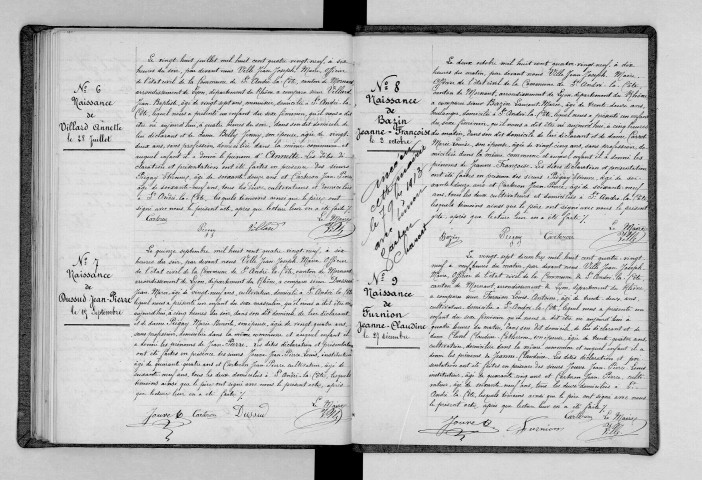 N° 6
Naissance
de
Villard Annette
le 28 Juillet
Le vingt huit juillet mil huit cent quatre vingt neuf, à six
heures du soir, par devant nous Villy Jean Joseph, Maire, officier
de l'état civil de la Commune de St André la Côte, canton de Mornant
arrondissement de Lyon, département du Rhône a comparu Villard
Jean Baptiste, âgé de vingt sept ans,
domicilié à St André la
Côte, lequel nous a présenté un enfant du sexe féminin, qu'il nous a dit
être né aujourd'hui à quatre heures du soir, dans son dit domicile de
lui déclarant et de dame Jenny, son épouse, âgée de vingt
deux ans, sans profession, domiciliée dans la même commune, et
auquel enfant il a donné le prénom d'Annette. Les dites
déclaration et présentation ont été faites en présence des sieurs
Etienne, âgé de soixante deux ans et Carteron Jean Pierre
âgé de soixante neuf ans, tous les deux cultivateurs et domiciliés
à St André la Côte, lesquels témoins ainsi que le père ont
signé avec nous le présent acte, après que lecture leur en a été faite /.
Carteron
Villard
Le Maire
Villy
N° 7
Naissance
de
Dussud Jean-Pierre
le 15 Septembre
Le quinze septembre mil huit cent quatre vingt neuf, à six
heures du soir, par devant nous Villy Jean Joseph Maire officier
de l'état civil de la Commune de St André la Côte, canton de Mornant,
arrondissement de Lyon, département du Rhône, a comparu
cultivateur, domicilié à St André la Côte
lequel nous a présenté un enfant du sexe masculin qu'il nous a dit être né
aujourd'hui à cinq heures du soir, dans son dit domicile de lui déclarant
et de dame Marie son épouse, âgée de vingt quatre ans,
sans profession, domiciliée dans la même commune et auquel enfant il
a donné les prénoms de Jean Pierre. Les dites déclaration et présentation
ont été faites en présence des sieurs Jouve Jean Pierre Louis, instituteur
âgé de quarante quatre ans et Carteron Jean Pierre cultivateur, âgé de
soixante neuf ans, tous les deux domiciliés à St André la Côte, lesquels
témoins ainsi que le père ont signé avec nous le présent acte, après
que lecture leur en a été faite /.
Jouve
Carteron
Dussud
Le Maire
Villy
N° 8
Naissance
de
Bazin
Jeanne-Françoise
le 2 octobre
Le deux octobre mil huit cent quatre vingt neuf, à dix
heures du matin, par devant nous Villy Jean Joseph Maire,
officier de l'état civil de la Commune de St André la Côte,
canton de Mornant, arrondissement de Lyon département du Rhône
a comparu sieur Bazin Laurent Marie, âgé de trente deux ans,
domicilié à St André la Côte, lequel nous a présenté un enfant
du sexe féminin, qu'il nous a dit être né aujourd'hui, à cinq heures
du matin, dans son dit domicile de lui déclarant et de dame
Marie Louise, son épouse, âgée de vingt cinq ans, sans profession,
domiciliée dans la même commune, et auquel enfant il a donné les
prénoms de Jeanne Françoise. Les dites déclaration et présentation
ont été faites en présence des sieurs Etienne, âgé de
soixante deux ans, et Carteron Jean Pierre, âgé de soixante neuf
ans, tous les deux cultivateurs et domiciliés à St André la Côte,
lesquels témoins ainsi que le père ont signé avec nous le présent
acte, après que lecture leur en a été faite /.
Bazin
Carteron
Le Maire
Villy
N° 9
Naissance
de
Furnion
Jeanne-Claudine
le 27 décembre
Le vingt sept décembre mil huit cent quatre vingt
neuf, à neuf heures du matin, par devant nous Villy Jean Joseph
Maire, officier de l'état civil de la Commune de St André la Côte,
canton de Mornant, arrondissement de Lyon, département du Rhône
a comparu sieur Furnion Louis Antoine, âgé de trente deux ans,
cultivateur, domicilié à St André la Côte, lequel nous a présenté
un enfant du sexe féminin qu'il nous a dit être né aujourd'hui à
quatre heures du matin, dans son dit domicile de lui déclarant et de
dame Claudine Catherine, son épouse, âgée de vingt quatre ans,
cultivatrice, domiciliée dans la même commune et auquel enfant il a
donné les prénoms de Jeanne Claudine. Les dites déclaration et
présentation ont été faites en présence des sieurs Jouve Jean Pierre Louis
instituteur, âgé de quarante quatre ans et Carteron Jean Pierre,
cultivateur, âgé de soixante neuf ans, tous les deux domiciliés à St
André la Côte, lesquels témoins ainsi que le père ont signé avec nous
le présent acte, après que lecture leur en a été faite /.
Carteron
Le Maire
Villy
Jouve
Furnion